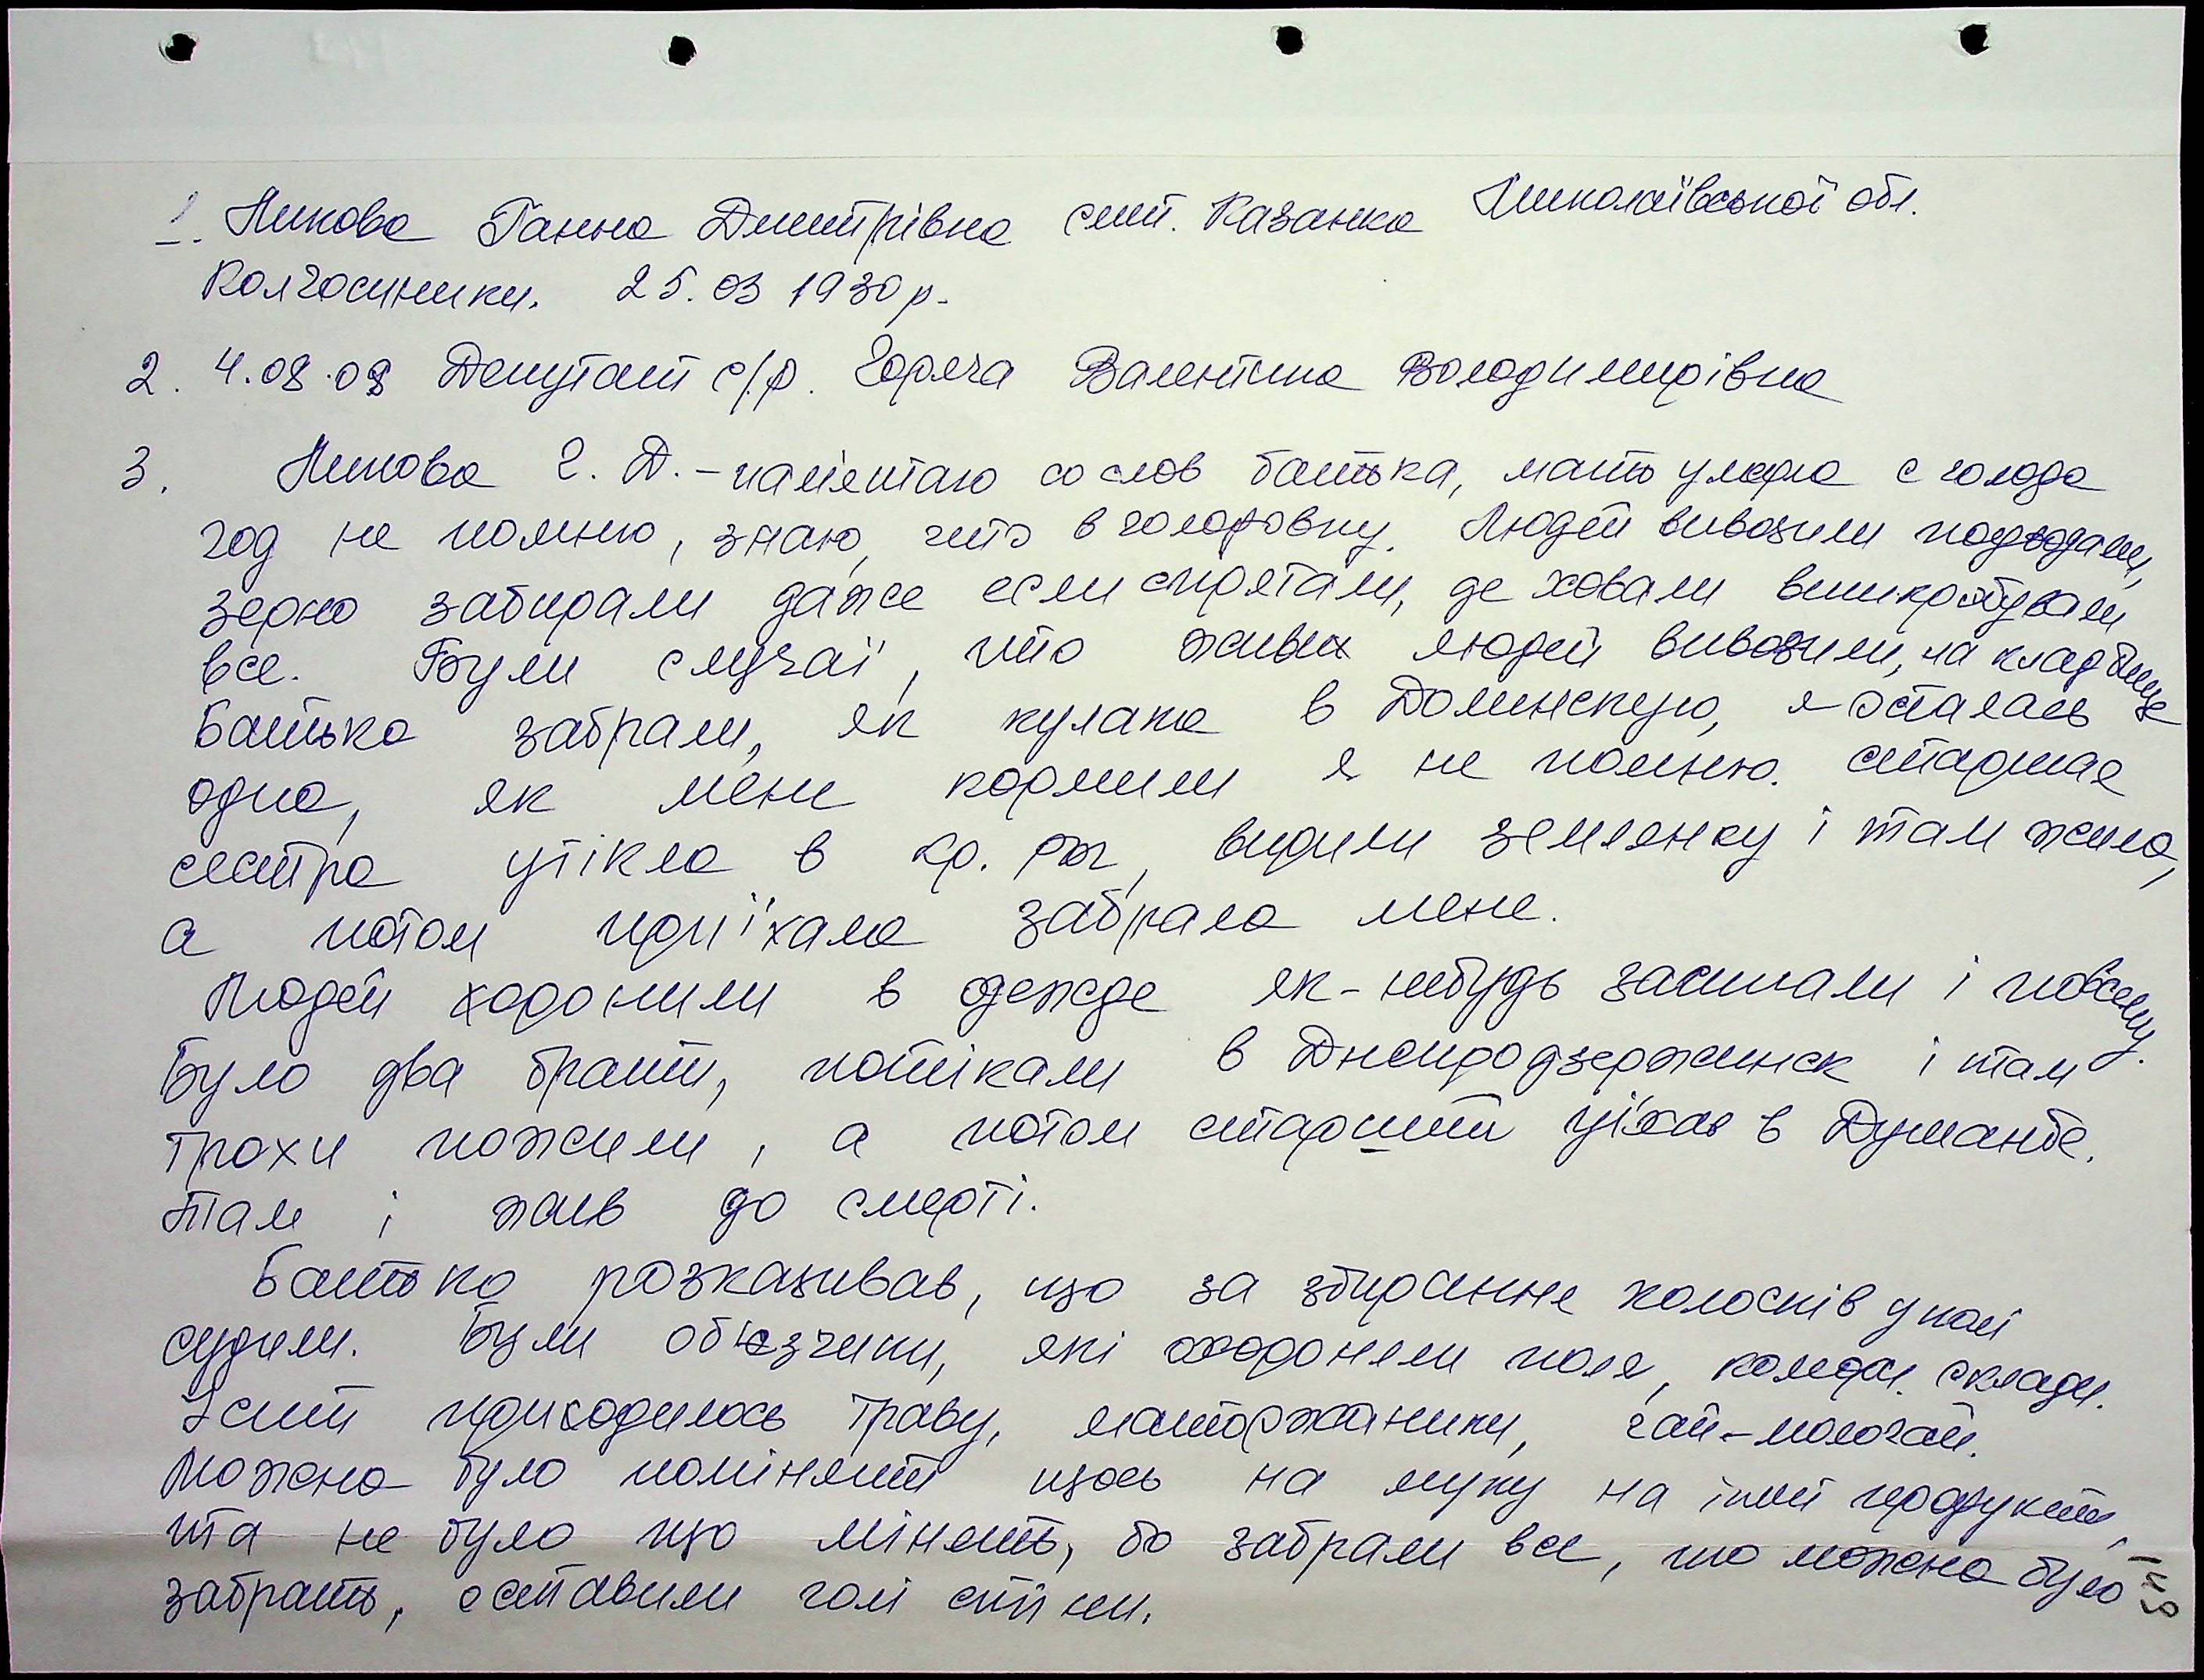 1. Липова Ганна Дмитрівна смт. Казанка Миколаївської обл.
Колгосиники. 25.03 1930р.
2. 4.08.08 Депутат с/р. Горяча Валентина Володимирівна
3. Липова Г. Д. – памʼятаю со слов батька, мать умерла с голода
год не помню, знаю, што в голоровку. Людей вивозили подводами,
зерно забирали даже если спрятали, де ховали вишкрябували
все. Були случаї, што живих людей вивозили, на кладбище
Батька забрали, як кулака в Долинскую, я осталась
одна, як мене кормили я не помню. старшая
сестра утікла в Кр. Рог, вирили землянку і там жила,
а потом приїхала забрала мене.
Людей хоронили в одежде як-небудь засипали і повсему.
Було два брати, потікали в Днепродзержинск і там
трохи пожили, а потом старший уїхав в Душанбе.
Там і жив до смерті.
Батько розказивав, що за збирання колосків у полі
судили. Були обʼєзчики, які охороняли поля, комори, склади.
Їсти приходилось траву, маторжаники, гай-молочай.
Можна було поміняти щось на муку на інші продукти,
та не було що мінять, бо забрали все, що можна було
забрать, оставили голі стіни.